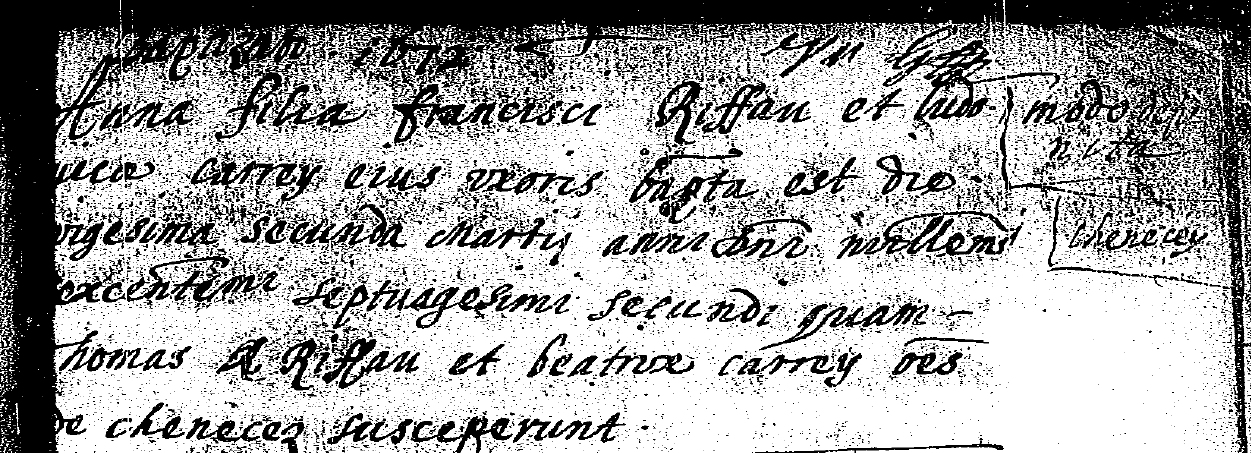 1672
Anna filia francisci Riffau et ludo-
uicæ carrey eius vxoris bapta est die
vigesima secunda Martij anni dni millemi
sexcentemi septuagesimi secundi quam
Thomas Riffau et beatrix carrey oes
de chenecez susceperunt.
modo
chenecey